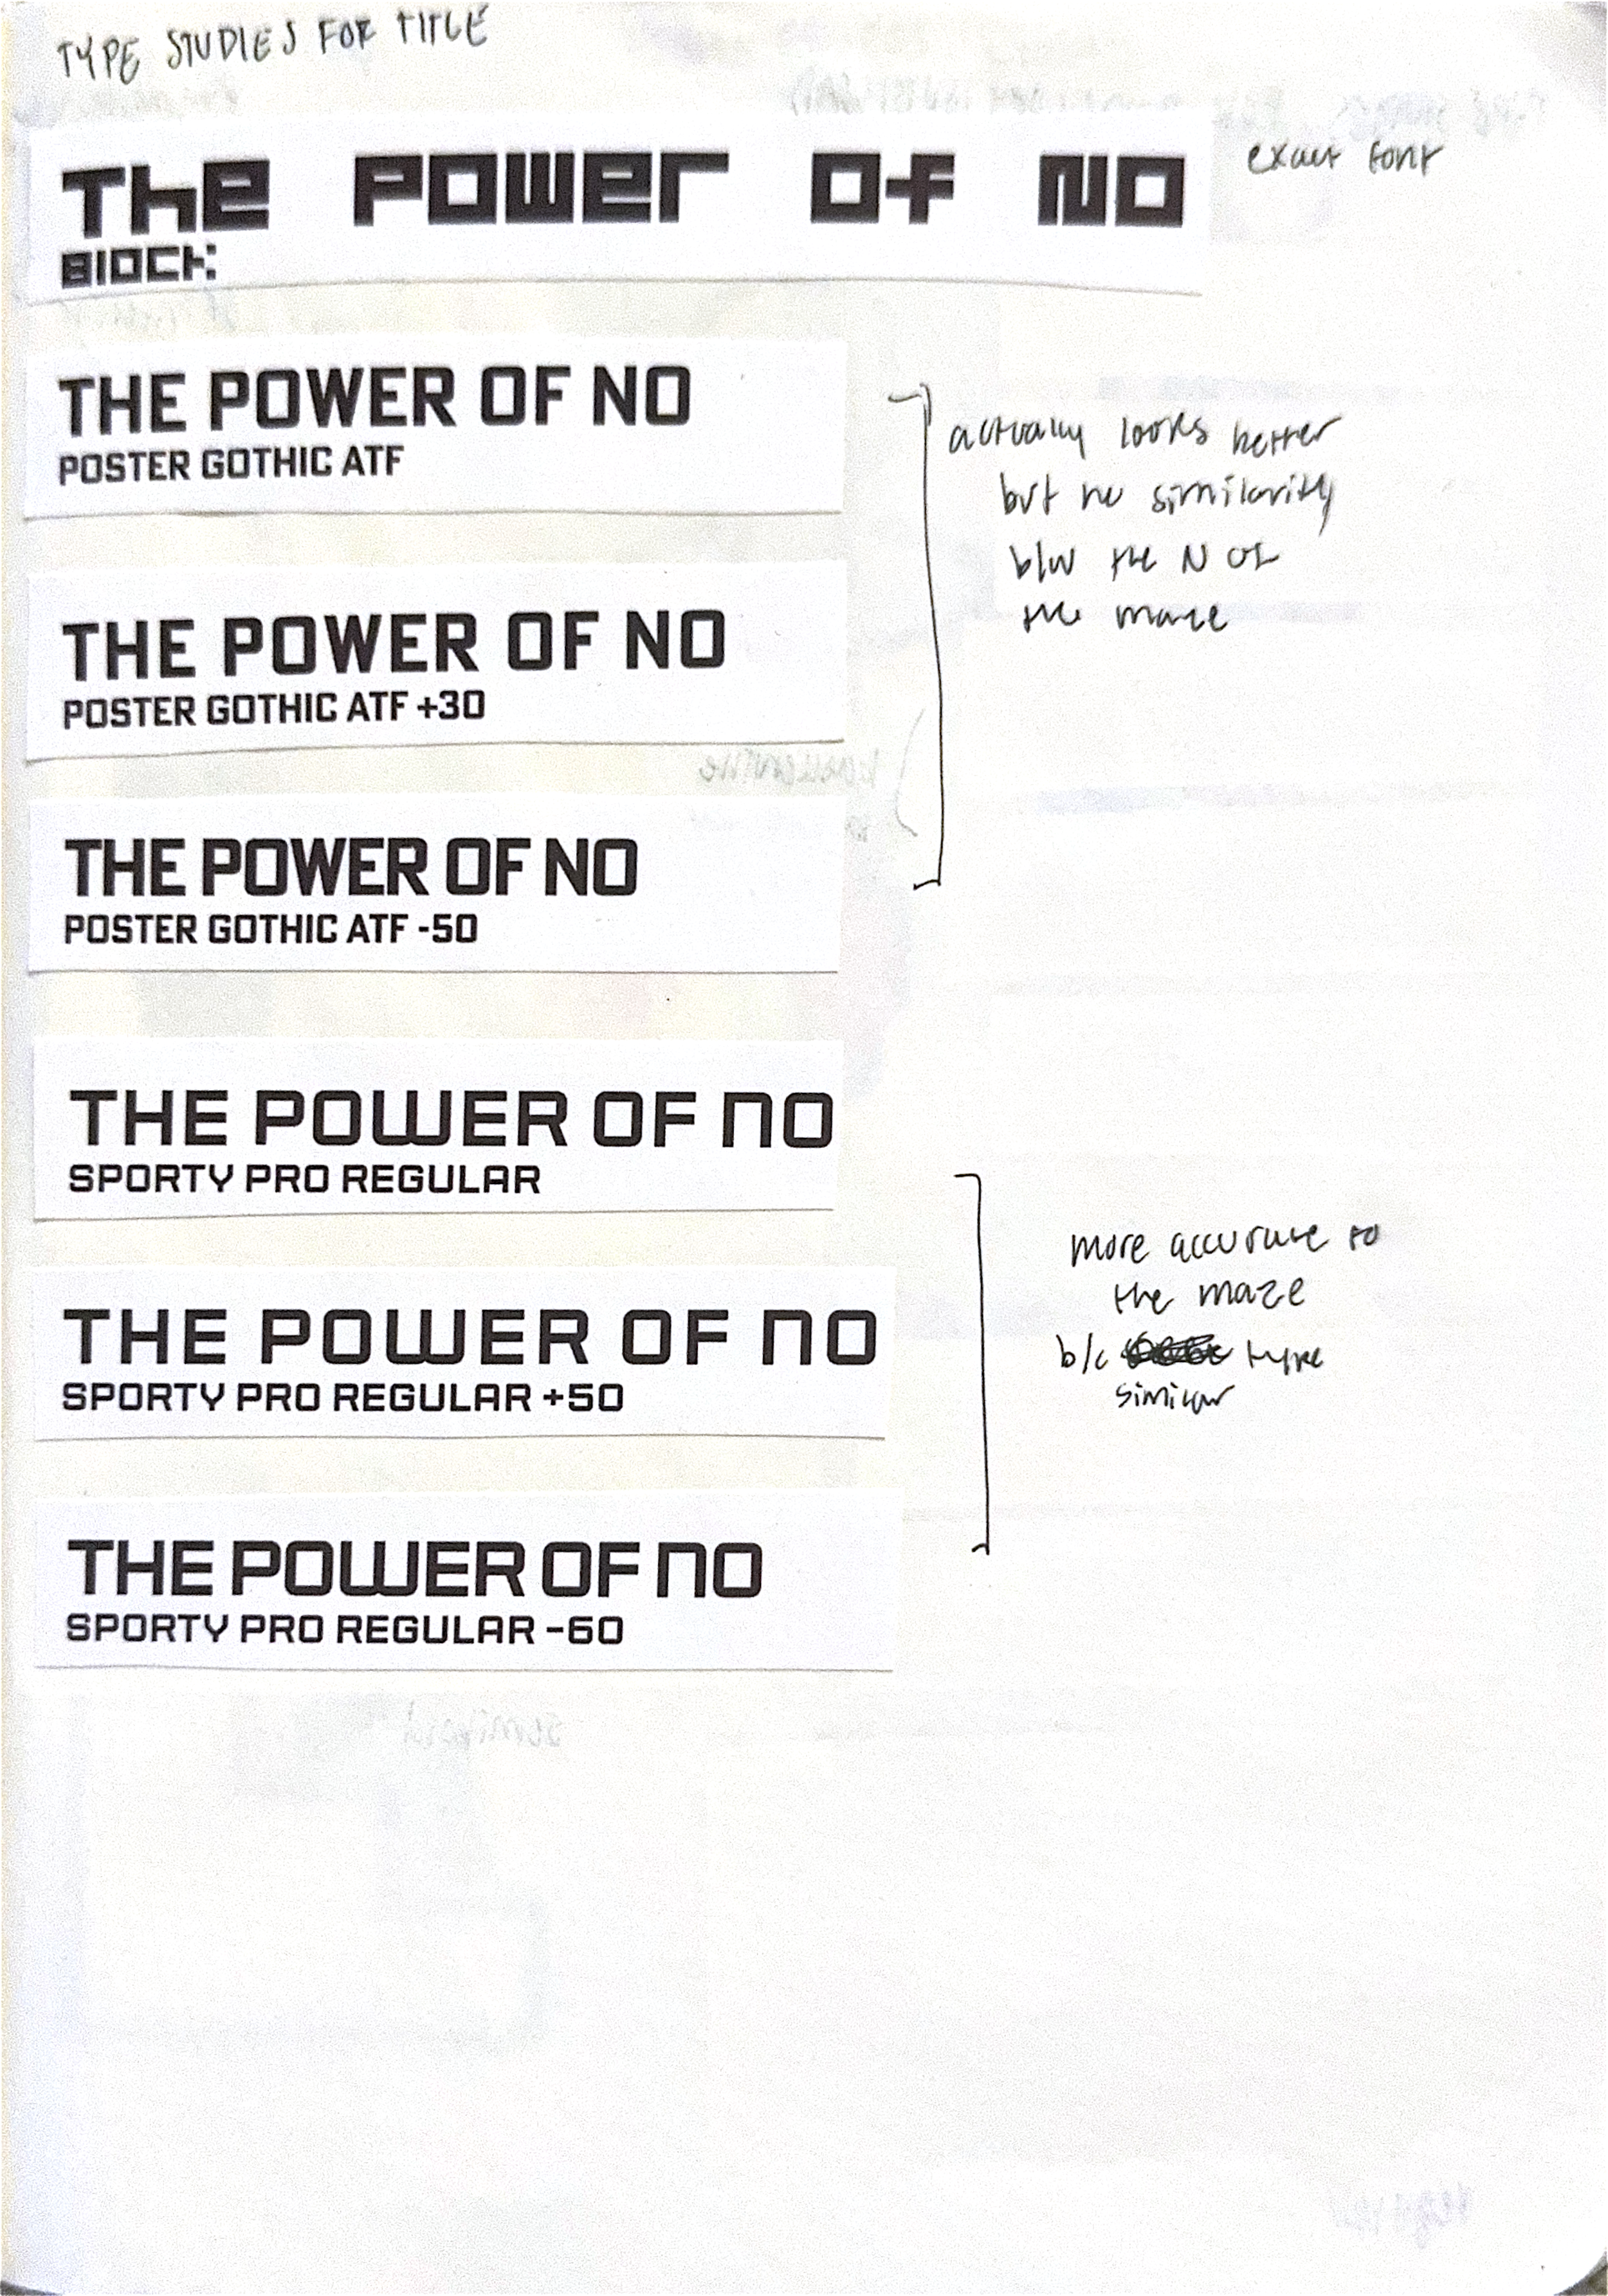 TYPE STUDIES FOR TITLE
The Power Of NO
Block:
exact font
THE POWER OF NO
POSTER GOTHIC ATF
THE POWER OF NO
POSTER GOTHIC ATF +30
THE POWER OF NO
POSTER GOTHIC ATF -50
actually looks better
but no similarity
b/w the N or
the maze
THE POWER OF NO
SPORTY PRO REGULAR
THE POWER OF NO
SPORTY PRO REGULAR +50
THE POWER OF NO
SPORTY PRO REGULAR -60
more accurate to
the maze
b/c type
similar